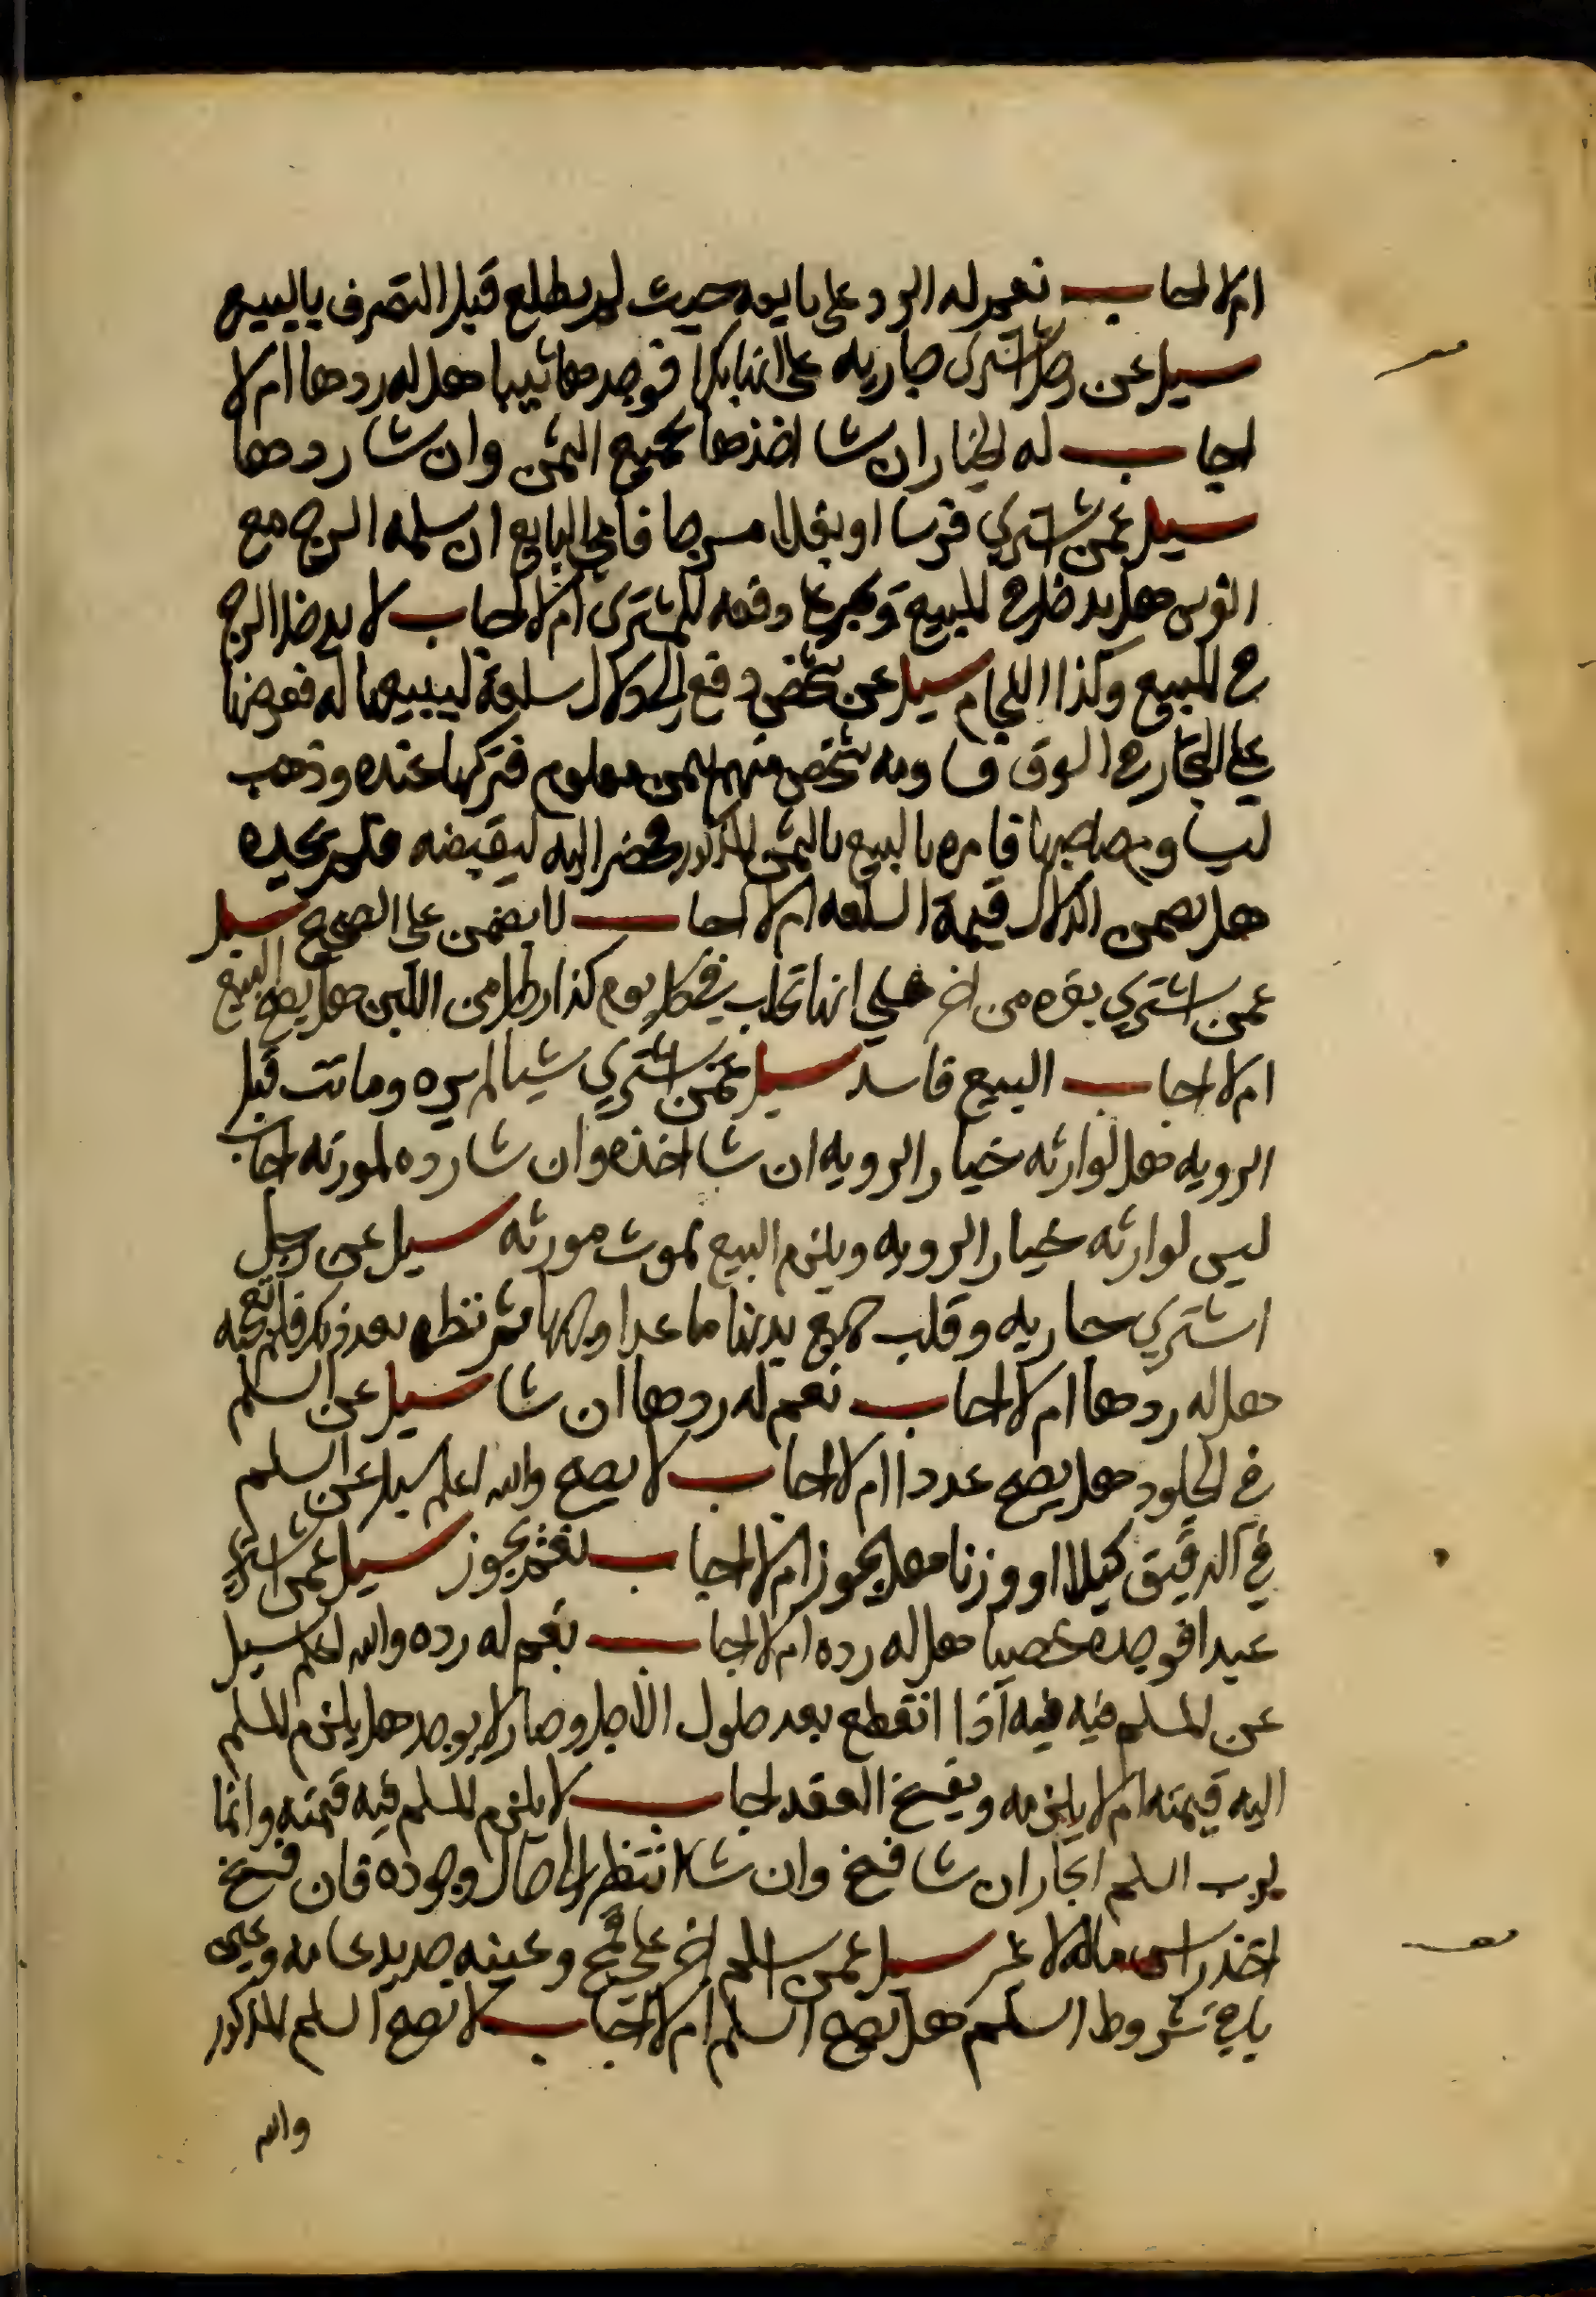 ام لا اجاب نعم له الرد على بايعه حيث لم يطلع قبل التصرف بالبيع
سيل عن رجل اشترى جاريه على انها بكرا فوجدها ثيبا هل له ردها ام لا
اجاب له الخيار ان شا اخذها بجميع الثمن وان شا ردها
سيل عمن اشتري فرسا او بغلا مسرجا فابى البايع ان يسلمه السرج مع
الفرس هل يدخل في المبيع ويجبر على دفعه للمشترى ام لا اجاب لا يدخل السرج
في المبيع وكذا اللجام سيل عن شخص دفع الى دلال سلعة ليبيعها له فعرضها
على التجار في السوق فساومه شخص منهم بثمن معلوم فتركها عنده وذهب
ليساوم صاحبها فامره بالبيع بالثمن المذكور فحضر اليه ليقبضه فلم يجده
هل يضمن الدلال قيمة السلعه ام لا اجاب لا يضمن على الصحيح سيل
عمن اشتري بقره من اخر على انها تحلب في كل يوم كذا رطلا من اللبن هل يصح البيع
ام لا اجاب البيع فاسد سيل عمن اشتري شيا لم يره ومات قبل
الرويه هل لوارثه خيار الرويه ان شا اخذه وان شا رده لمورثه اجاب
ليس لوارثه خيار الرويه ويلزم البيع بموت مورثه سيل عن رجل
اشتري جاريه وقلب جميع بدنها ما عدا وجهها ثم نظره بعد ذلك فلم تعجبه
هل له ردها ام لا اجاب نعم له ردها ان شا سيل عن السلم
في الجلود هل يصح عددا ام لا اجاب لا يصح والله اعلم سيل عن السلم
في الدقيق كيلا او وزنا هل يجوز ام لا اجاب نعم يجوز سيل عمن اشترى
عبدا فوجده خصيا هل له رده ام لا اجاب نعم له رده والله اعلم سيل
عن المسلم فيه فيه اذا انقطع بعد حلول الاجل وصار لا يوجد هل يلزم المسلم
اليه قيمته ام لا يلزمه ويفسخ العقد اجاب لا يلزم المسلم فيه قيمته وانما
لرب السلم الخيار ان شا فسخ وان شا انتظر الى حال وجوده فان فسخ
اخذ راس ماله لا غير سيل عمن اسلم اخر على قمح وعينه جديد عامه وعين
باقي شروط السلم هل يصح السلم ام لا اجاب لا يصح السلم المذكور
والله